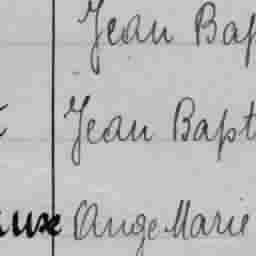 Jean Bap
Jean Bapt
aux Ange Marie